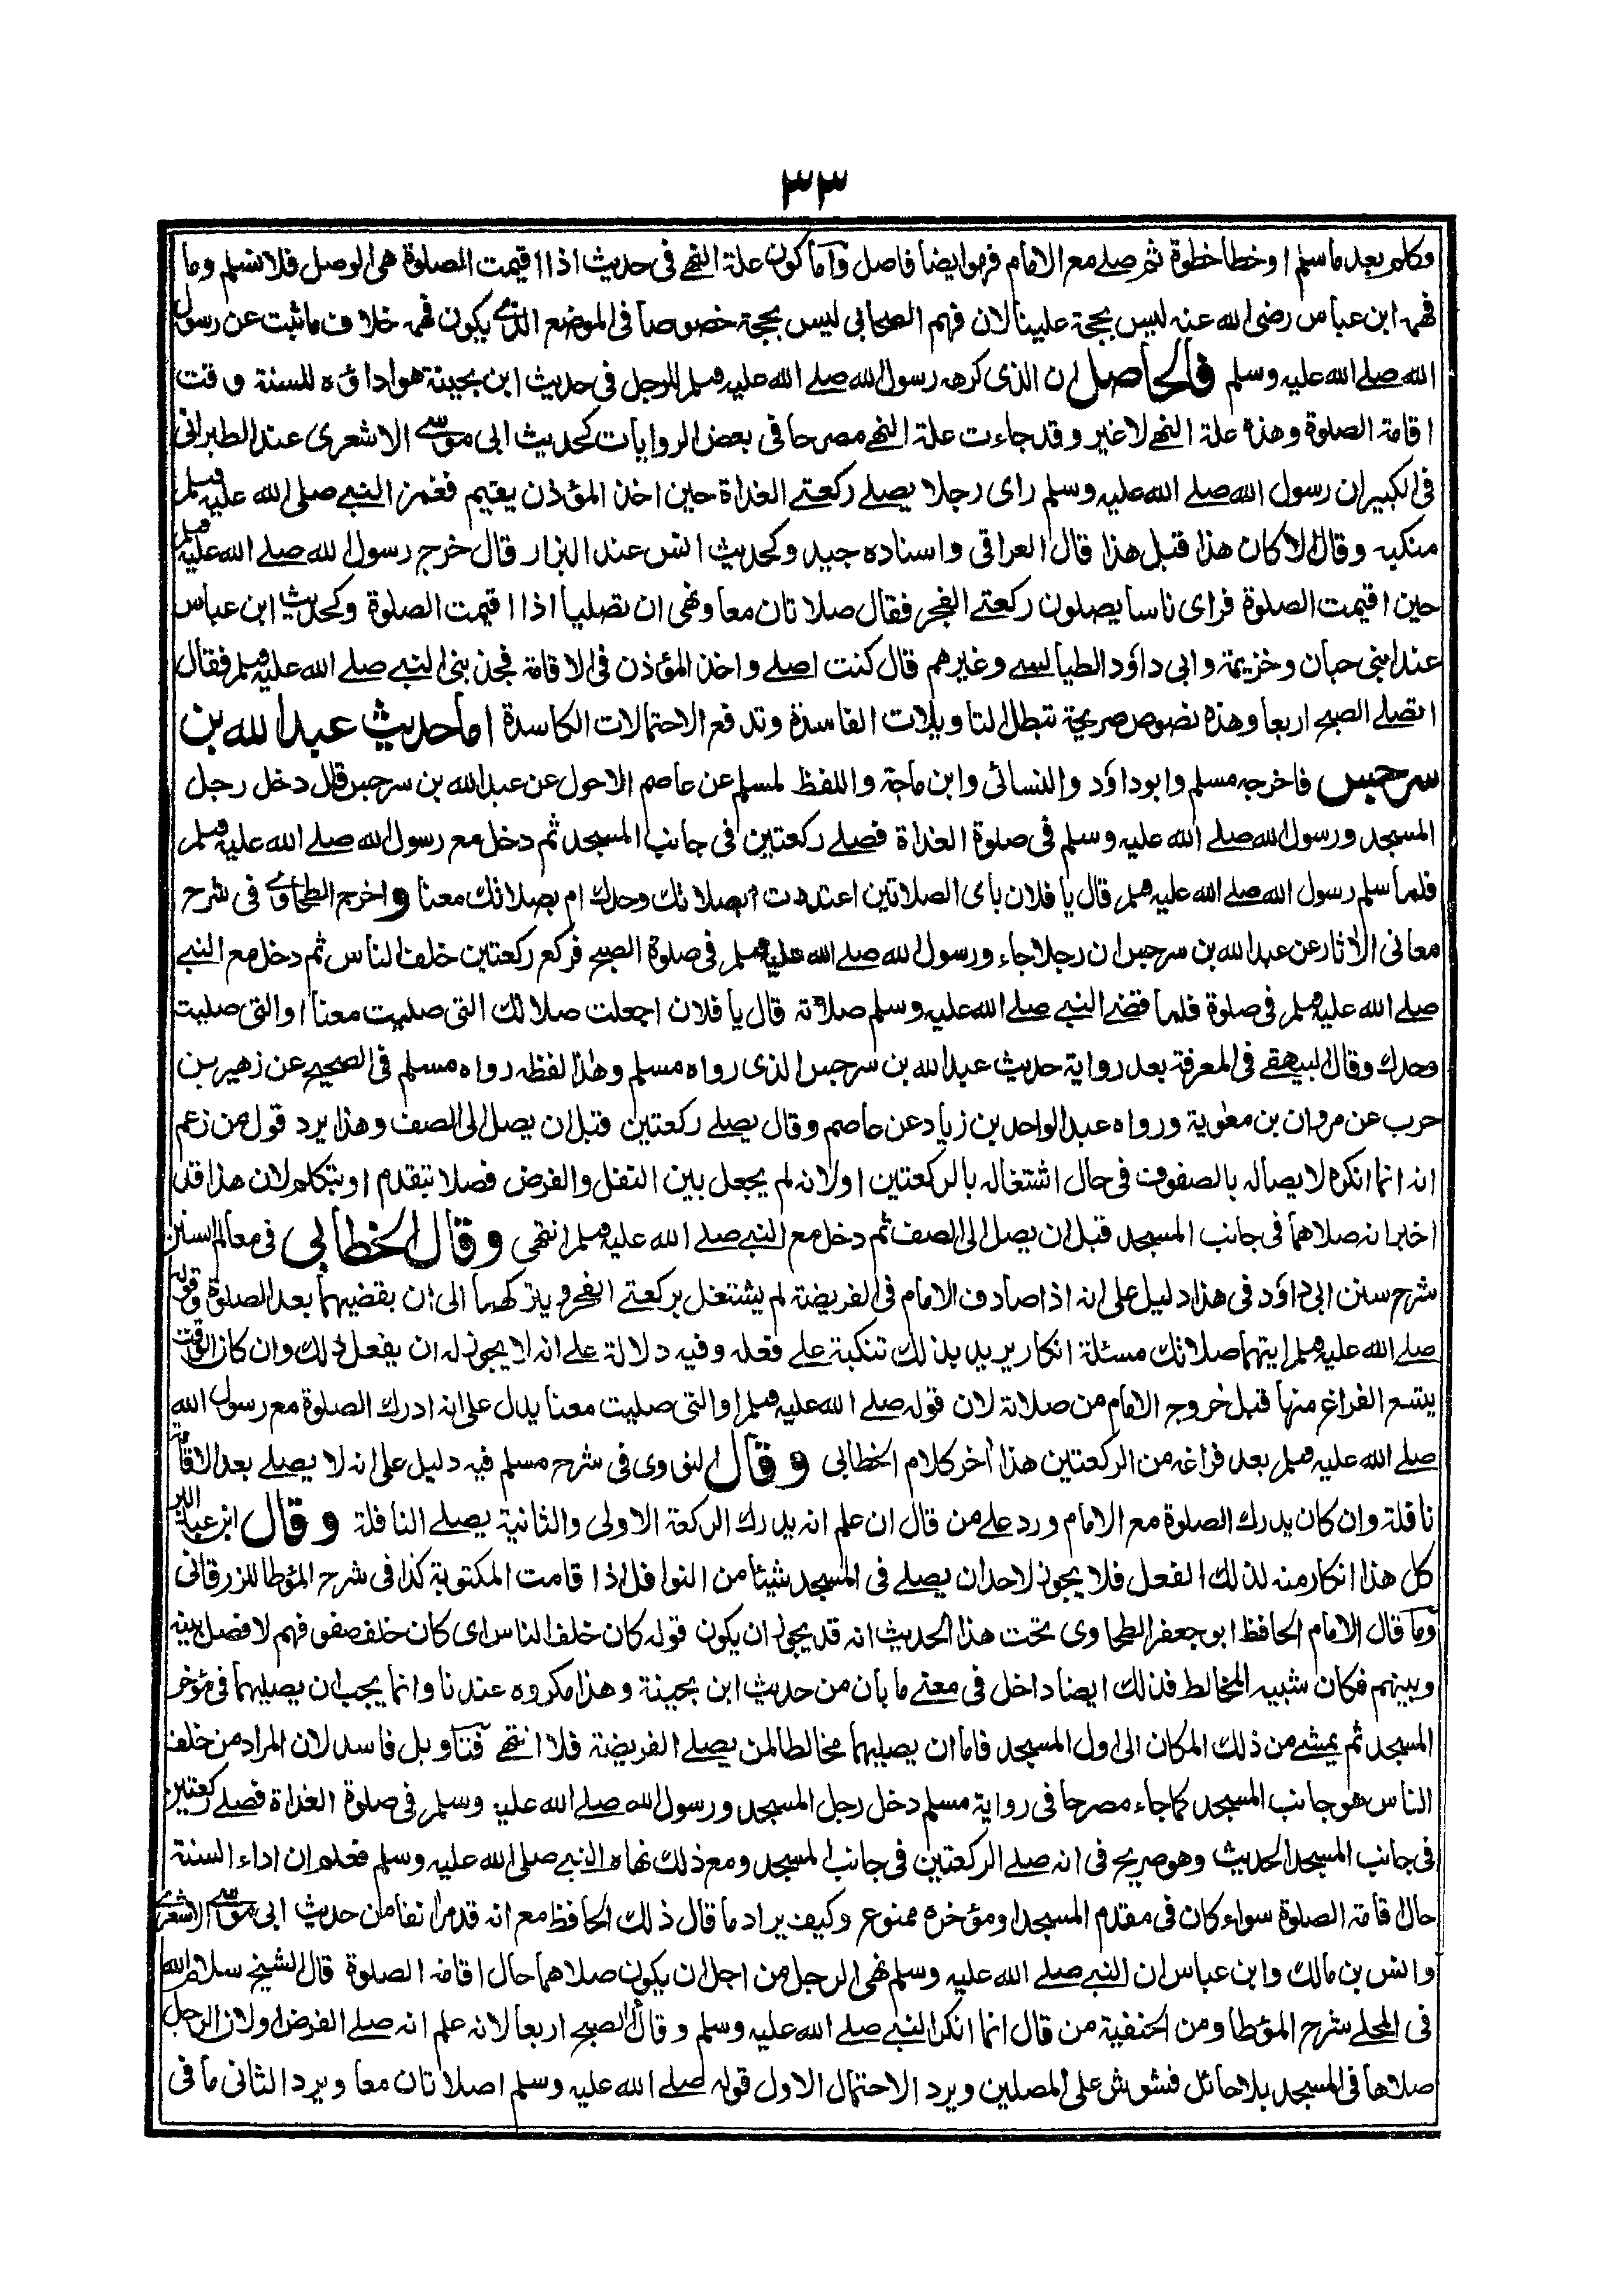 ٣٣
وكلم بعد ما سلم او خطا خطوة ثم صلے مع الامام فهو ايضا فاصل وآما كون علة النهے فى حديث اذا اقيمت الصلوة هى الوصل فلا نسلم وما
فهمه ابن عباس رضى الله عنه ليس بحجة علينا لان فهم الصحابى ليس بحجة خصوصا فى الموضع الذے يكون فهمه خلاف ما ثبت عن رسول
الله صلے الله عليه وسلم فالحاصل ان الذى كرهه رسول الله صلے الله عليه وسلم للرجل فى حديث ابن بحينة هو اداؤه للسنة وقت
اقامة الصلوة وهذه علة النهے لا غير وقد جاءت علة النهے مصرحا فى بعض الروايات كحديث ابى موسے الاشعرى عند الطبرانى
فى الكبير ان رسول الله صلے الله عليه وسلم راى رجلا يصلے ركعتے الغداة حين اخذ المؤذن يقيم فغمز النبے صلى الله عليه وسلم
منكبه وقال الا كان هذا قبل هذا قال العراقى واسناده جيد وكحديث انس عند البزار قال خرج رسول الله صلے الله عليه وسلم
حين اقيمت الصلوة فراى ناسا يصلون ركعتے الفجر فقال صلاتان معا ونهى ان تصليا اذا اقيمت الصلوة وكحديث ابن عباس
عند ابنى حبان وخزيمة وابى داؤد الطيالسے وغيرهم قال كنت اصلے واخذ المؤذن فى الاقامة فجذبنى النبے صلے الله عليه وسلم فقال
اتصلے الصبح اربعا وهذه نصوص صريحة تبطل التاويلات الفاسدة وتدفع الاحتمالات الكاسدة اما حديث عبد الله بن
سرجس فاخرجه مسلم وابوداؤد والنسائى وابن ماجة واللفظ لمسلم عن عاصم الاحول عن عبد الله بن سرجس قال دخل رجل
المسجد ورسول الله صلے الله عليه وسلم فى صلوة الغداة فصلے ركعتين فى جانب المسجد ثم دخل مع رسول الله صلے الله عليه وسلم
فلما سلم رسول الله صلے الله عليه وسلم قال يا فلان باى الصلاتين اعتددت ابصلاتك وحدك ام بصلاتك معنا واخرج الطحاوے فى شرح
معانى الاٰثار عن عبد الله بن سرجس ان رجلا جاء ورسول الله صلے الله عليه وسلم فى صلوة الصبح فركع ركعتين خلف الناس ثم دخل مع النبے
صلے الله عليه وسلم فى صلوة فلما قضے النبے صلے الله عليه وسلم صلاته قال يا فلان اجعلت صلاتك التى صليت معنا او التى صليت
وحدك وقال البيهقے فى المعرفة بعد رواية حديث عبد الله بن سرجس الذى رواه مسلم وهذا لفظه رواه مسلم فى الصحيح عن زهير بن
حرب عن مروان بن معٰوية ورواه عبد الواحد بن زياد عن عاصم وقال يصلے ركعتين قبل ان يصل الى الصف وهذا يرد قول من زعم
انه انما انكره لايصاله بالصفوف فى حال اشتغاله بالركعتين او لانه لم يجعل بين النفل والفرض فصلا بتقدم او بتكلم لان هذا قد
اخبر انه صلاهما فى جانب المسجد قبل ان يصل الى الصف ثم دخل مع النبے صلے الله عليه وسلم انتهى وقال الخطابى فى معالم السنن
شرح سنن ابى داؤد فى هذا دليل على انه اذا صادف الامام فى الفريضة لم يشتغل بركعتے الفجر ويتركهما الى ان يقضيهما بعد الصلوة وقوله
صلے الله عليه وسلم ايتهما صلاتك مسئلة انكار يريد بذلك تنكبة علے فعله وفيه دلالة علے انه لا يجوز له ان يفعل ذلك وان كان الوقت
يتسع الفراغ منها قبل خروج الامام من صلاته لان قوله صلے الله عليه وسلم او التى صليت معنا يدل على انه ادرك الصلوة مع رسول الله
صلے الله عليه وسلم بعد فراغه من الركعتين هذا اٰخر كلام الخطابى وقال النووى فى شرح مسلم فيه دليل على انه لا يصلے بعد الاقامة
نافلة وان كان يدرك الصلوة مع الامام ورد علے من قال ان علم انه يدرك الركعة الاولى والثانية يصلے النافلة وقال ابن عبد البر
كل هذا انكار منه لذلك الفعل فلا يجوز لاحد ان يصلے فى المسجد شيئا من النوافل اذا قامت المكتوبة كذا فى شرح المؤطا للزرقانى
وآما قال الامام الحافظ ابو جعفر الطحاوى تحت هذا الحديث انه قد يجوز ان يكون قوله كان خلف الناس اى كان خلف صفوفهم لا فصل بينه
وبينهم فكان شبيه المخالط فذلك ايضا داخل فى معنے ما بان من حديث ابن بحينة وهذا مكروه عندنا وانما يجب ان يصليهما فى مؤخر
المسجد ثم يمشے من ذلك المكان الى اول المسجد فاما ان يصليهما مخالطا لمن يصلے الفريضة فلا انتهے فتاويل فاسد لان المراد من خلف
الناس هو جانب المسجد كما جاء مصرحا فى رواية مسلم دخل رجل المسجد ورسول الله صلے الله عليه وسلم فى صلوة الغداة فصلے ركعتين
فى جانب المسجد الحديث وهو صريح فى انه صلے الركعتين فى جانب المسجد ومع ذلك نهاه النبے صلى الله عليه وسلم فعلم ان اداء السنة
حال اقامة الصلوة سواء كان فى مقدم المسجد او مؤخره ممنوع وكيف يراد ما قال ذلك الحافظ مع انه قد مر اٰنفا من حديث ابى موسے الاشعرے
وانس بن مالك وابن عباس ان النبے صلے الله عليه وسلم نهى الرجل من اجل ان يكون صلاهما حال اقامة الصلوة قال الشيخ سلام الله
فى المحلے شرح المؤطا ومن الحنفية من قال انما انكر النبے صلے الله عليه وسلم وقال الصبح اربعا لانه علم انه صلے الفرض او لان الرجل
صلاها فى المسجد بلا حائل فشوش على المصلين ويرد الاحتمال الاول قوله صلے الله عليه وسلم اصلاتان معا ويرد الثانى ما فى